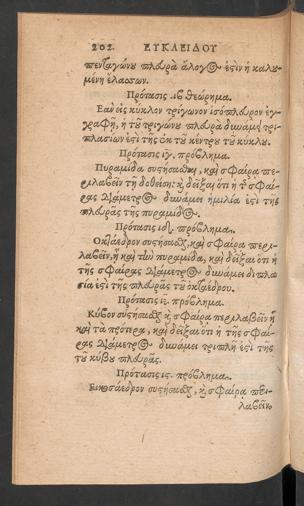 202. ΕΥΚΛΕΙΔΟΥ
πενταγώνου πλευρὰ ἄλογος ἐστὶν ἡ καλου-
μένη ἐλάσσων.
Πρότασις .ιβ θεώρημα.
Ἐὰν εἰς κύκλον τρίγωνον ἰσόπλευρον ἐγ-
γραφῇ, ἡ τοῦ τριγώνου πλευρὰ δυνάμει τρι-
πλασίων ἐστὶ τῆς ἐκ τοῦ κέντρου τοῦ κύκλου.
Πρότασις ιγ. πρόβλημα.
Πυραμίδα συστήσασθαι, καὶ σφαίρα περι-
λαβεῖν τῇ δοθείσῃ: καὶ δεῖξαι ὅτι ἡ τῆς σφαί-
ρας διάμετρος δυνάμει ἡμιλία ἐστὶ τῆς
πλευρᾶς τῆς πυραμίδος.
Πρότασις ιδ. πρόβλημα.
Ὀκτάεδρον συστήσασθαι, καὶ σφαίρα περι-
λαβεῖν, ᾗ καὶ τὴν πυραμίδα, καὶ δεῖξαι ὅτι ἡ
τῆς σφαίρας διάμετρος δυνάμει διπλα
σία ἐστὶ τῆς πλευρᾶς τοῦ ὀκταέδρου.
Πρότασις ιε. πρόβλημα.
Κύβον συστήσασθαι καὶ σφαίρα περιλαβεῖν ᾗ
καὶ τὰ πρότερα, καὶ δεῖξαι ὅτι ἡ τῆς σφαί-
ρας διάμετρος δυνάμει τριπλῆ ἐστὶ τῆς
τοῦ κύβου πλευρᾶς.
Πρότασις ις. πρόβλημα.
Εἰκοσάεδρον συστήσασθαι, καὶ σφαίρα περι-
λαβεῖν,